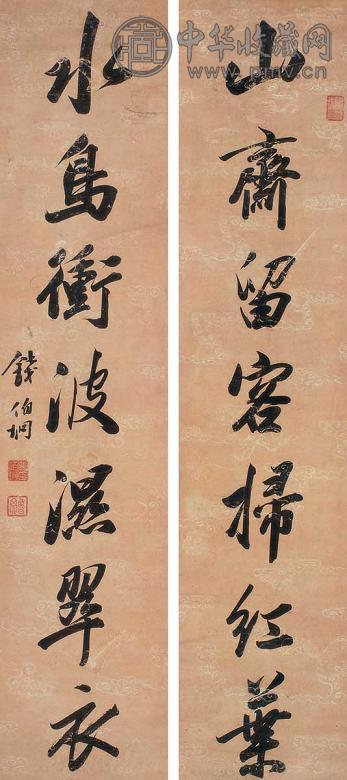 山齋留客掃紅葉
水鳥衝波濕翠衣
錢伯坰
中华收藏网
www.pmv.cn